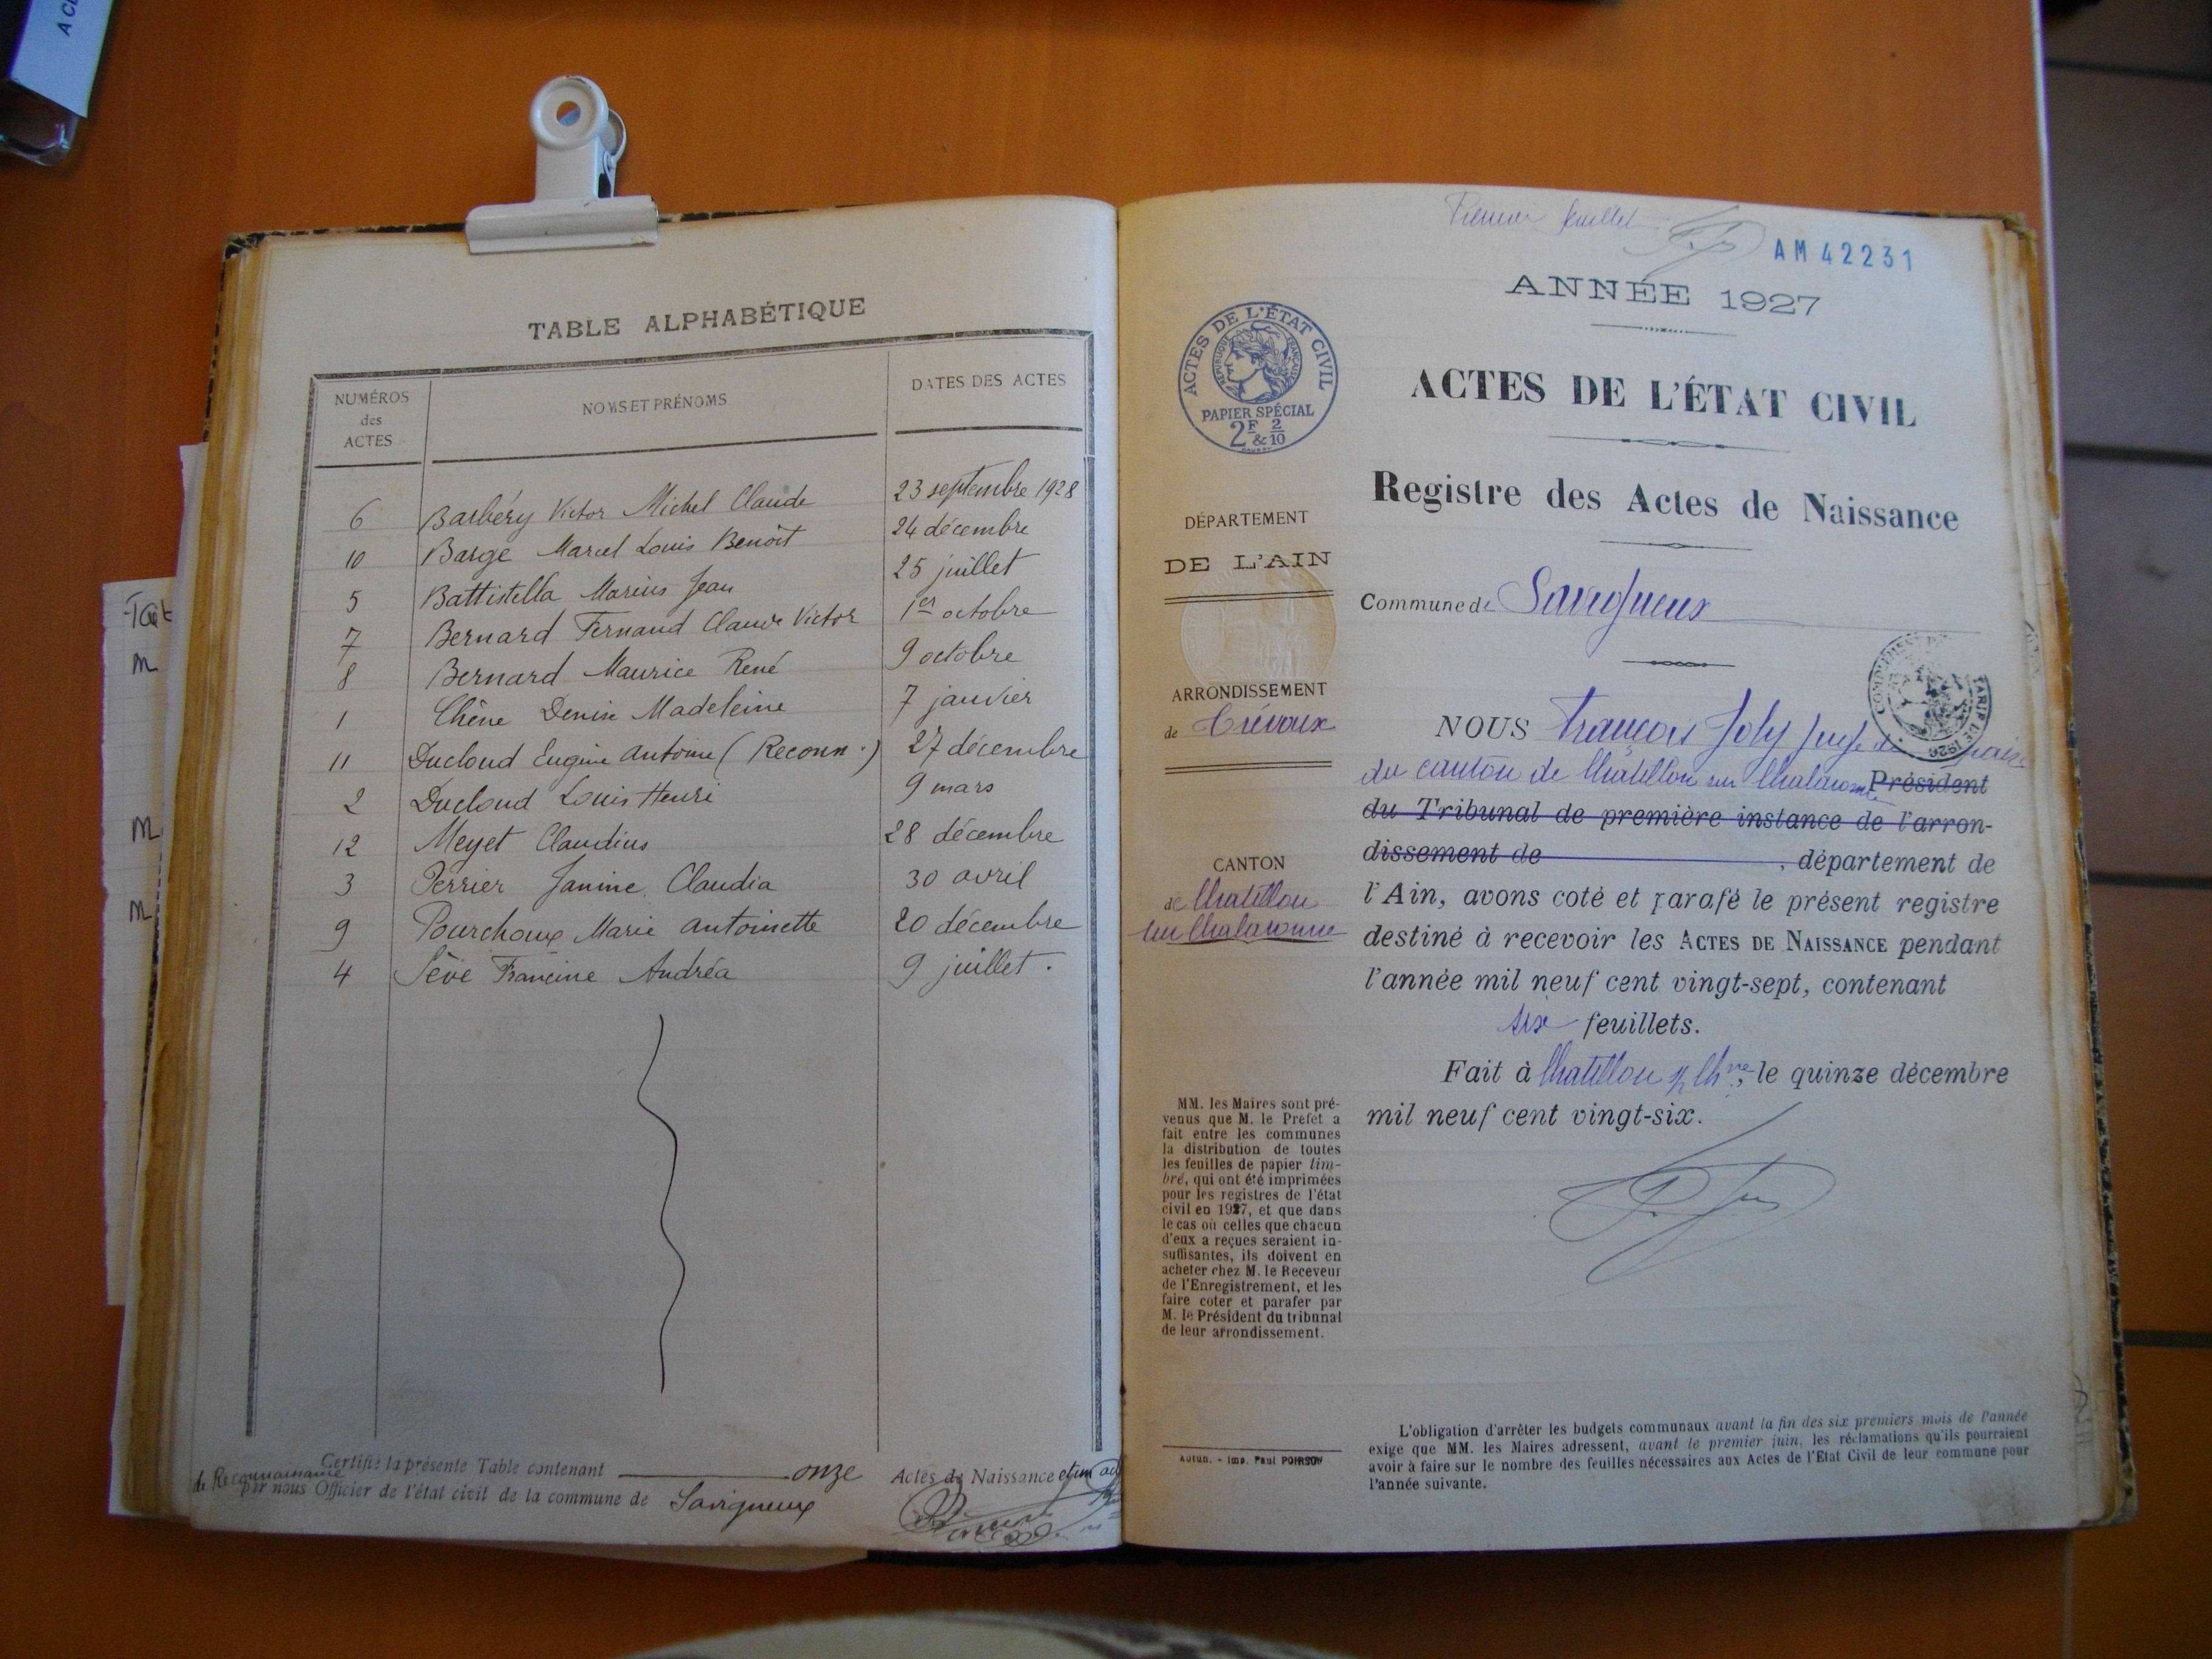 TABLE ALPHABÉTIQUE
NUMÉROS
des
ACTES
NOMS ET PRÉNOMS
DATES DES ACTES
6 Barbéry Victor Michel Claude 23 septembre 1928
10 Barge Marcel Louis Benoît 24 décembre
5 Battistella Marius Jean 25 juillet
7 Bernard Fernand Claude Victor 1er octobre
8 Bernard Maurice René 9 octobre
1 Chêne Denise Madeleine 7 janvier
11 Ducloud Eugène Antoine (Reconn.) 27 décembre
2 Ducloud Louis Henri 9 mars
12 Meyet Claudius 28 décembre
3 Perrier Janine Claudia 30 avril
9 Pourchoux Marie Antoinette 20 décembre
4 Sève Francine Andréa 9 juillet.
Certifié la présente Table contenant onze Actes de Naissance et un
de Reconnaissance
par nous Officier de l'état civil de la commune de Savigneux
M
M
M
Premier feuillet
AM 42231
ANNÉE 1927
ACTES DE L'ÉTAT CIVIL
RÉPUBLIQUE FRANÇAISE
PAPIER SPÉCIAL
2F & 2/10
ACTES DE L'ÉTAT CIVIL
Registre des Actes de Naissance
DÉPARTEMENT
DE L'AIN
Commune de Savigneux
ARRONDISSEMENT
de Trévoux
CANTON
de Chatillon
sur Chalaronne
TARIF DE 1926
NOUS François Joly Juge de paix
du canton de Chatillon sur Chalaronne Président
du Tribunal de première instance de l'arron-
dissement de , département de
l'Ain, avons coté et parafé le présent registre
destiné à recevoir les ACTES DE NAISSANCE pendant
l'année mil neuf cent vingt-sept, contenant
six feuillets.
Fait à Chatillon s/ Chne, le quinze décembre
mil neuf cent vingt-six.
MM. les Maires sont pré-
venus que M. le Préfet a
fait entre les communes
la distribution de toutes
les feuilles de papier tim-
bré, qui ont été imprimées
pour les registres de l'état
civil en 1927, et que dans
le cas où celles que chacun
d'eux a reçues seraient in-
suffisantes, ils doivent en
acheter chez M. le Receveur
de l'Enregistrement, et les
faire coter et parafer par
M. le Président du tribunal
de leur arrondissement.
Autun. - Imp. Paul POIRSON
L'obligation d'arrêter les budgets communaux avant la fin des six premiers mois de l'année
exige que MM. les Maires adressent, avant le premier juin, les réclamations qu'ils pourraient
avoir à faire sur le nombre des feuilles nécessaires aux Actes de l'État Civil de leur commune pour
l'année suivante.